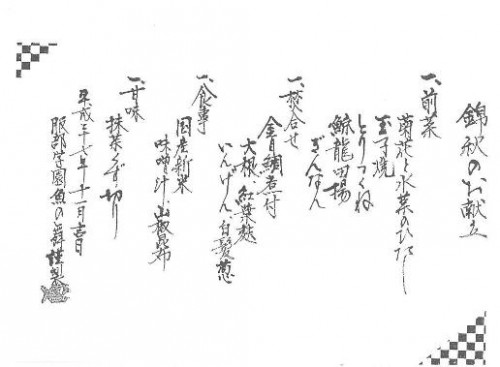 錦秋のお献立
一、前菜
菊花と水菜のひたし
玉子焼
とりつくね
鯨龍田揚
ぎんなん
一、炊合せ
金目鯛煮付
大根 紅葉麩
いんげん 白髪葱
一、食事
国産新米
味噌汁 山椒昆布
一、甘味
抹茶くず切り
平成二十七年十一月吉日
服部学園魚の舞謹製